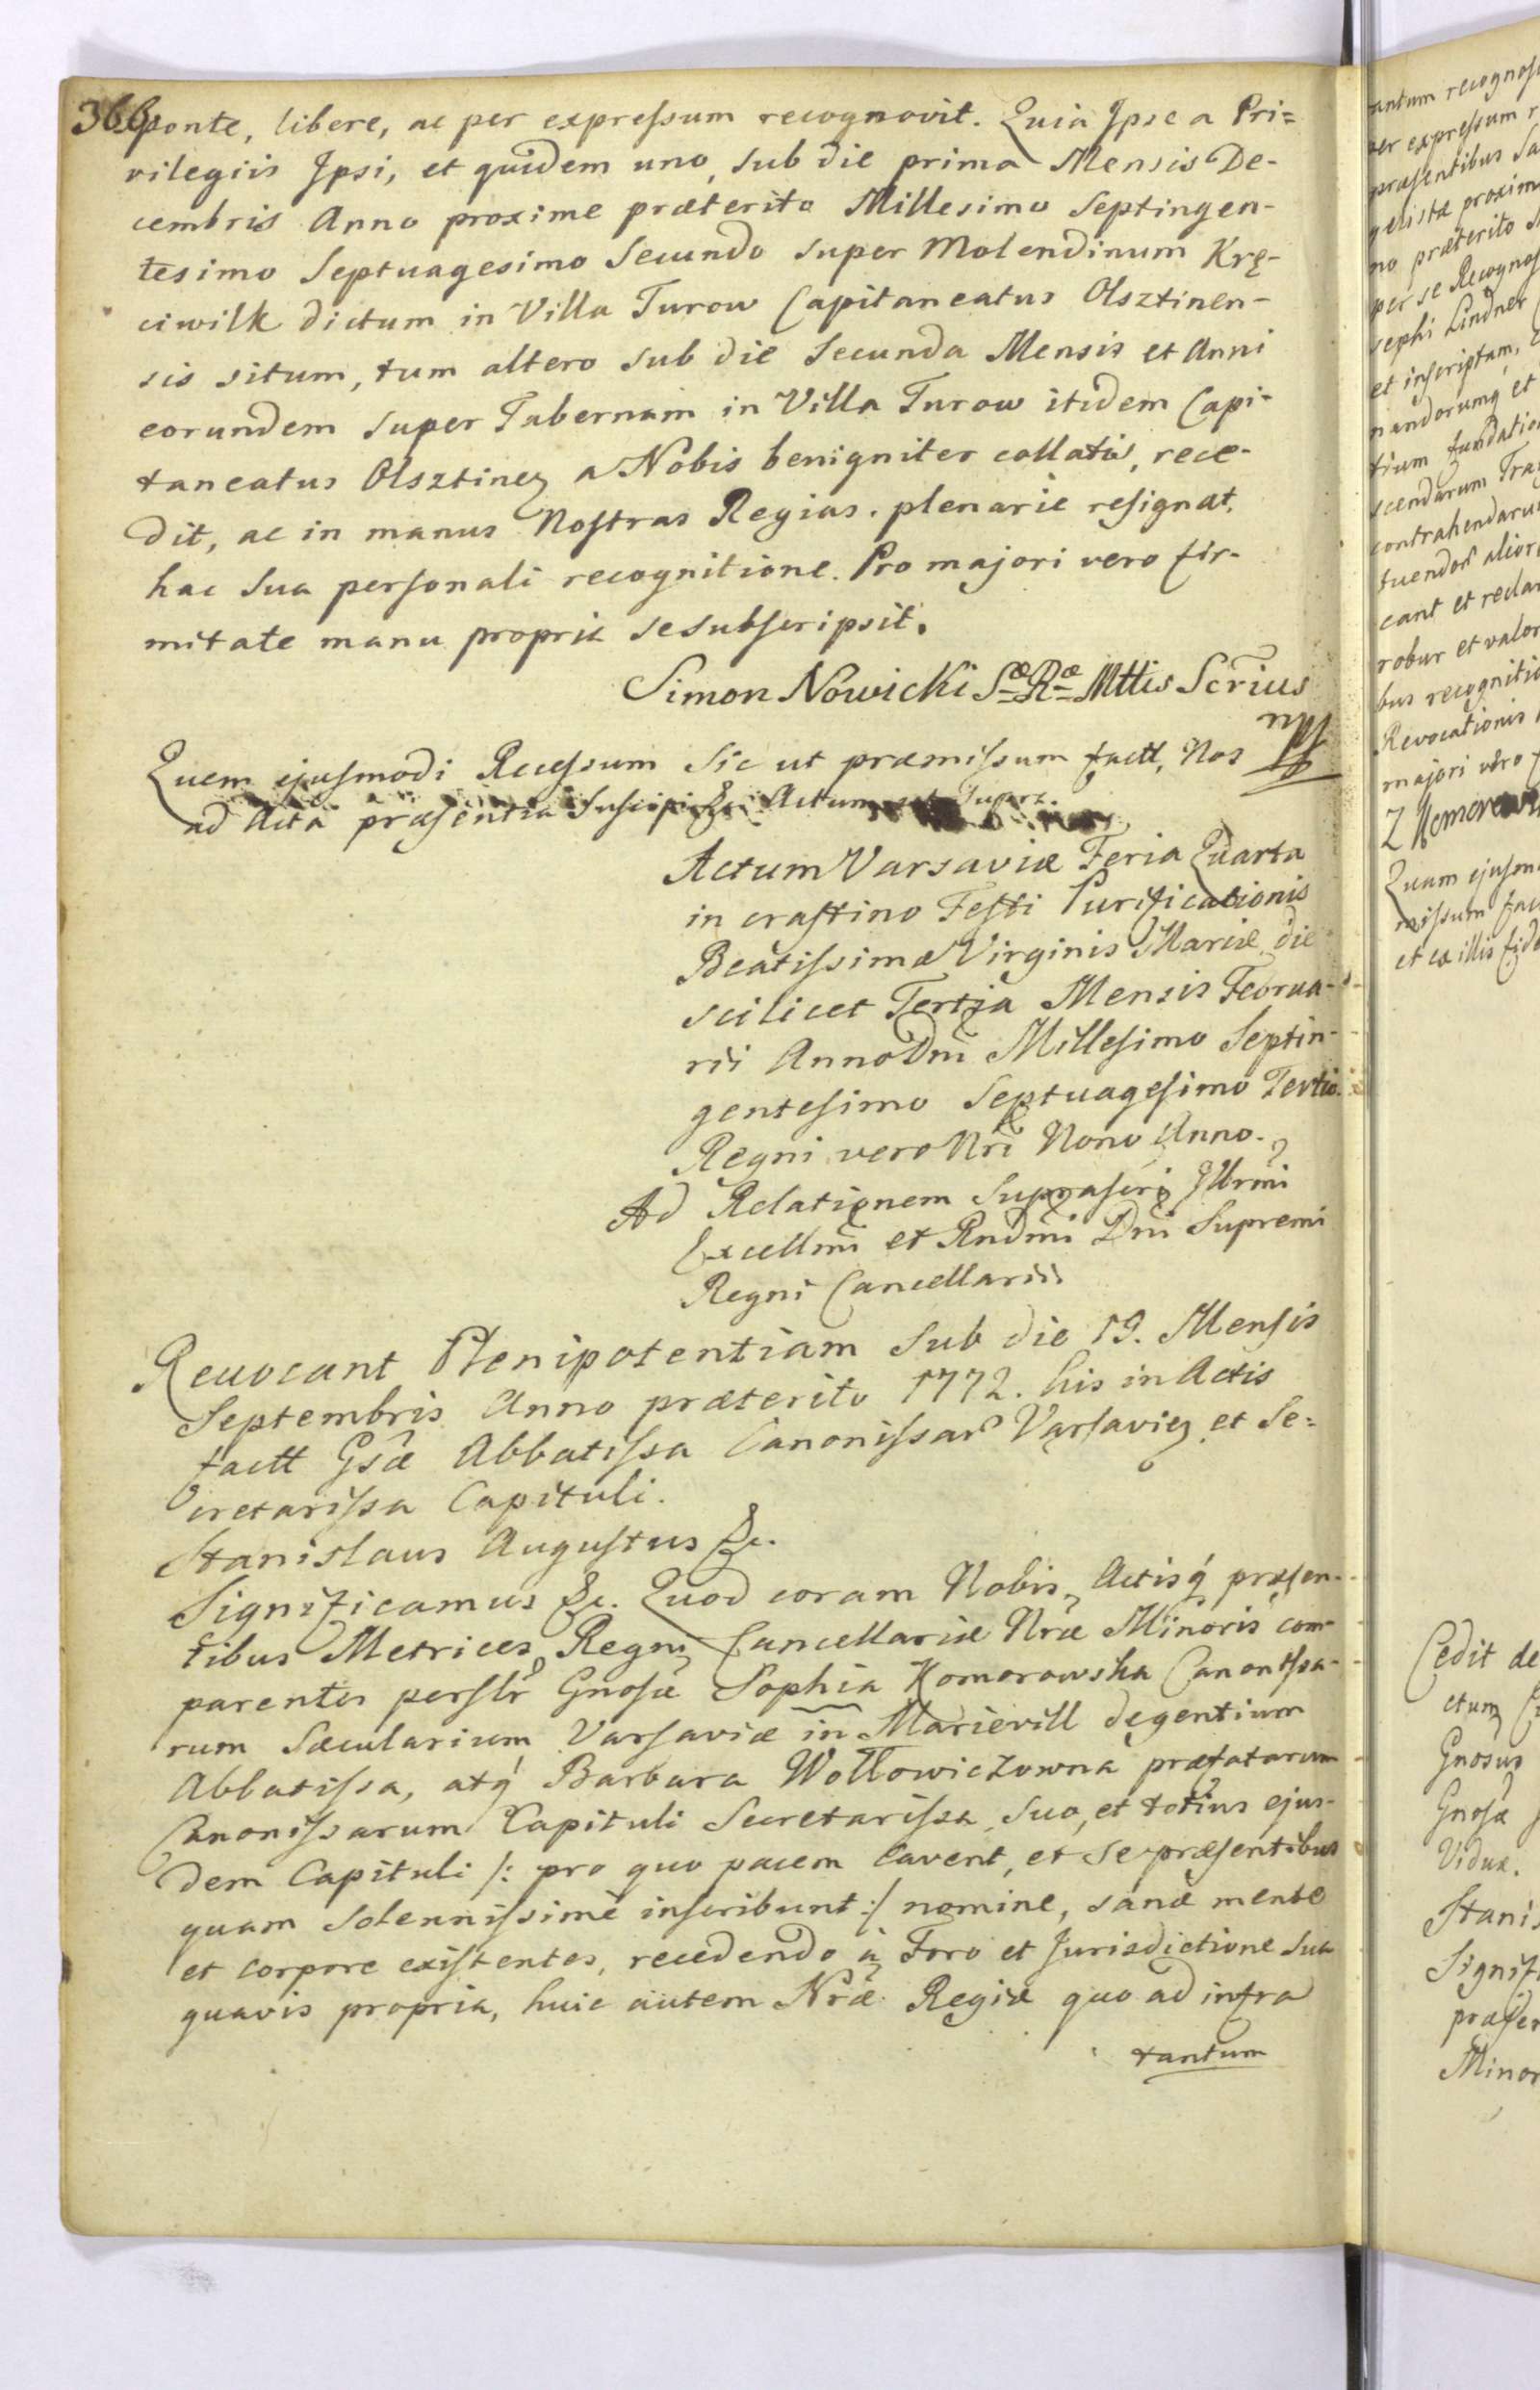 366
sponte, libere, ac per expreſsum recognovit. Quia Ipse a Pri=
vilegiis Ipsi, et quidem uno, sub die prima Mensis De-
cembris Anno proxime præterito Millesimo Septingen-
tesimo Septuagesimo Secundo super Molendinum Krę-
ciwilk dictum in Villa Turow Capitaneatus Olsztinen-
sis situm, tum altero sub die Secunda Mensis et Anni
eorundem super Tabernam in Villa Turow itidem Capi-
taneatus Olsztinen a Nobis benigniter collatis, rece-
dit, ac in manus Noſtras Regias. plenarie reſignat,
hac sua perſonali recognitione. Pro majori vero fir-
mitate manu propria se subſcripsit.
Simon Nowicki Sæ Ræ Mttis Scrius
mp
Quem ejuſmodi Receſsum sic ut præmiſsum factt, Nos
ad Acta præſentia Suſcipi &c. Actum ut Supra.
Actum Varsaviæ Feria Quarta
in craſtino Feſti Purificationis
Beatiſsimæ Virginis Mariæ, die
scilicet Tertia Mensis Februa-
rii Anno Dni Milleſimo Septin-
genteſimo Septuageſimo Tertio.
Regni vero Nri Nono Anno.
Ad Relationem Supraſcri Illrmi
Excellmi et Rndmi Dni Supremi
Regni Cancellarii
Revocant Plenipotentiam sub die 19. Menſis
Septembris Anno præterito 1772. his in Actis
factt Gsæ Abbatiſsa Canoniſsar Varſavien et Se=
cretariſsa Capituli.
Stanislaus Auguſtus &c.
Significamus &c. Quod coram Nobis, Actisq præſen-
tibus Metrices Regni Cancellariæ Nræ Minoris com-
parentes perſlr Gnoſæ Sophia Komorowska Canoniſsa-
rum Sæcularium Varſaviæ in Marievill degentium
Abbatiſsa, atq Barbara Wołłowiczowna præfatarum
Canoniſsarum Capituli Secretariſsa, suo, et totius ejus-
dem Capituli /: pro quo pacem cavent, et se præſentibus
quam solenniſsimè inſcribunt :/ nomine, sanæ mente
et corpore exiſtentes, recedendo à Foro et Jurisdictione sua
quavis propria, huic autem Nræ Regiæ quo ad infra
tantum
antum recognoſ
per expreſsum r
præſentibus
geliſtæ proxim
no præterito
per se Recognoſ
sephi Lindner
et inſcriptam,
nandorumq et
tium fundatio
scendarum Tra
contrahendarum
tuendor alior
cant et recla
robur et valor
bus recognitio
Revocationis
majori vero f
Quam ejuſm
miſsum fac
et ex illis fide
Cedit de
ctum
Gnosus
Gnoſæ
Viduæ.
Stanis
Signif
præſen
Minor